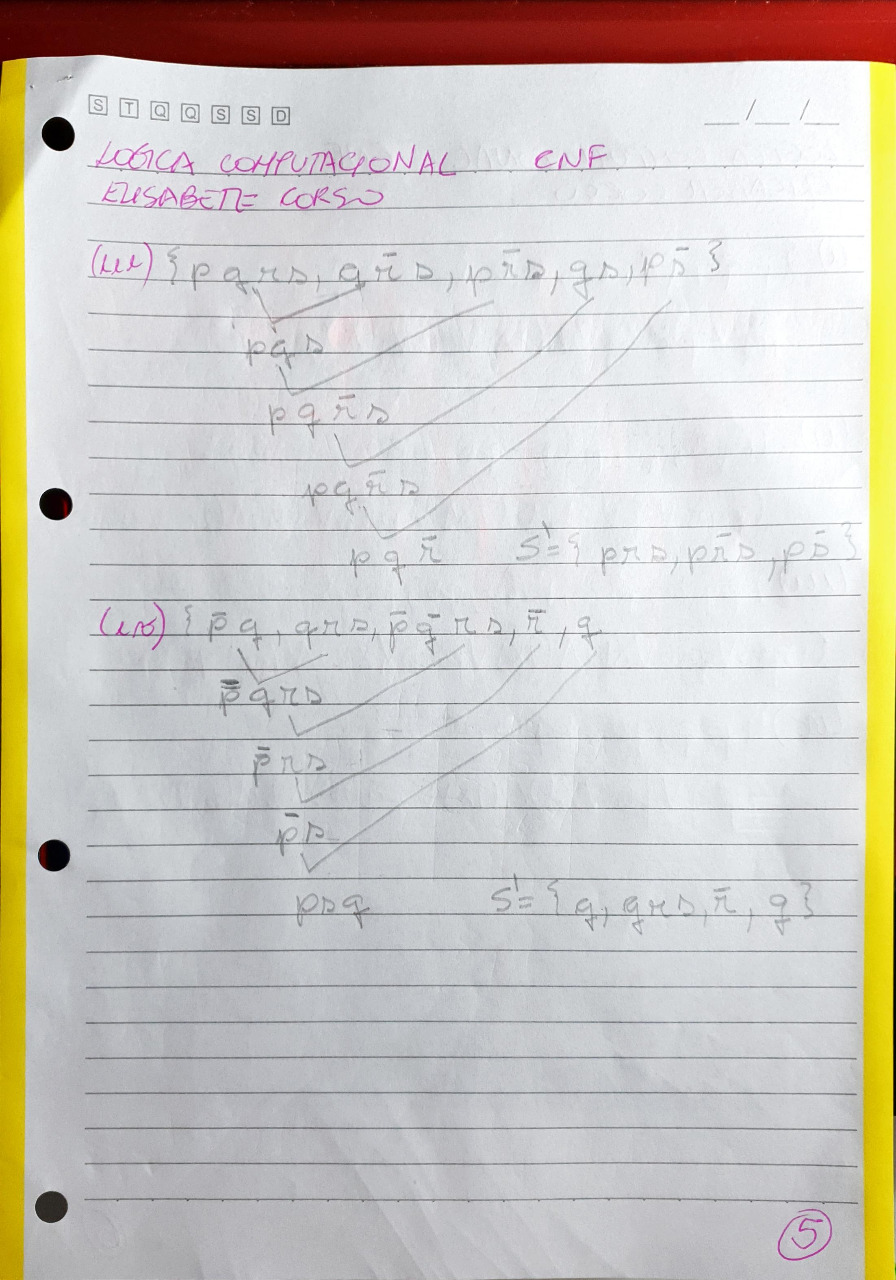 S T Q Q S S D __/__/__
LOGICA COMPUTACIONAL CNF
ELISABETE CORSO
(iii) {pqrs, qr̄s, pr̄s, qs, ps̄}
pqs
pqr̄s
pqr̄s
pqr̄ S'={prs, pr̄s, ps̄}
(iv) {p̄q, qrs, p̄q̄rs, r̄, q
p̄qrs
p̄rs
p̄s
psq S'={q, qrs, r̄, q}
5